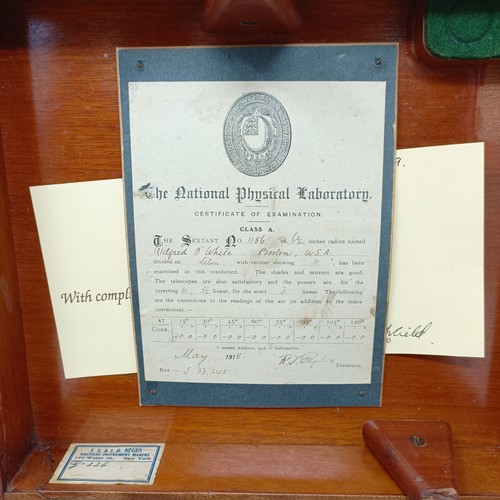 The National Physical Laboratory.
CERTIFICATE OF EXAMINATION
CLASS A.
THE SEXTANT No. 1186 of 6½ inches radius named
Wilfred O'White, Boston, USA
divided on silver with vernier showing 10", has been
examined at this institution. The shades and mirrors are good.
The telescopes are also satisfactory and the powers are, for the
inverting linear, for the erect 3 linear. The following
are the corrections to the readings of the arc (in addition to the index
correction):—
AT 15° 30° 45° 60° 75° 90° 105° 120°
CORR.
+ means Additive, and — Subtractive.
May 1918.
DIRECTOR.
33,245
With compl
field
T. S. & J. D. NEGUS
NAUTICAL INSTRUMENT MAKERS
140 Water St. New York